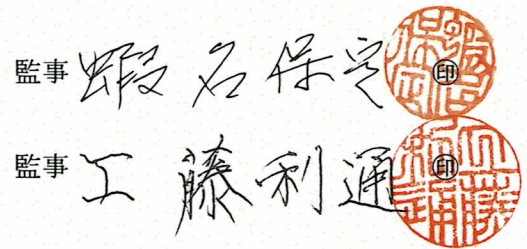 監事 蝦名保定 ㊞
監事 工藤利通 ㊞